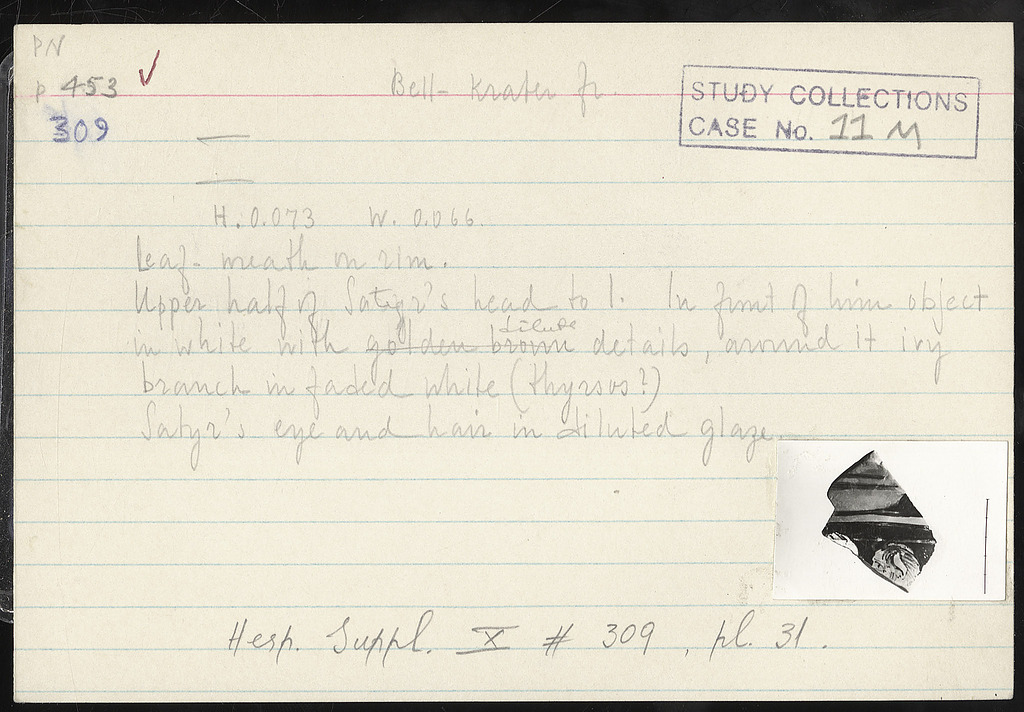 PN
P 453 ✓
309
Bell-Krater fr.
STUDY COLLECTIONS
CASE No. 11 M
H. 0.073 W. 0.066.
Leaf-wreath on rim.
Upper half of Satyr's head to l. In front of him object
in white with golden brown dilute details, around it ivy
branch in faded white (thyrsos?)
Satyr's eye and hair in diluted glaze
Hesp. Suppl. X # 309, pl. 31.